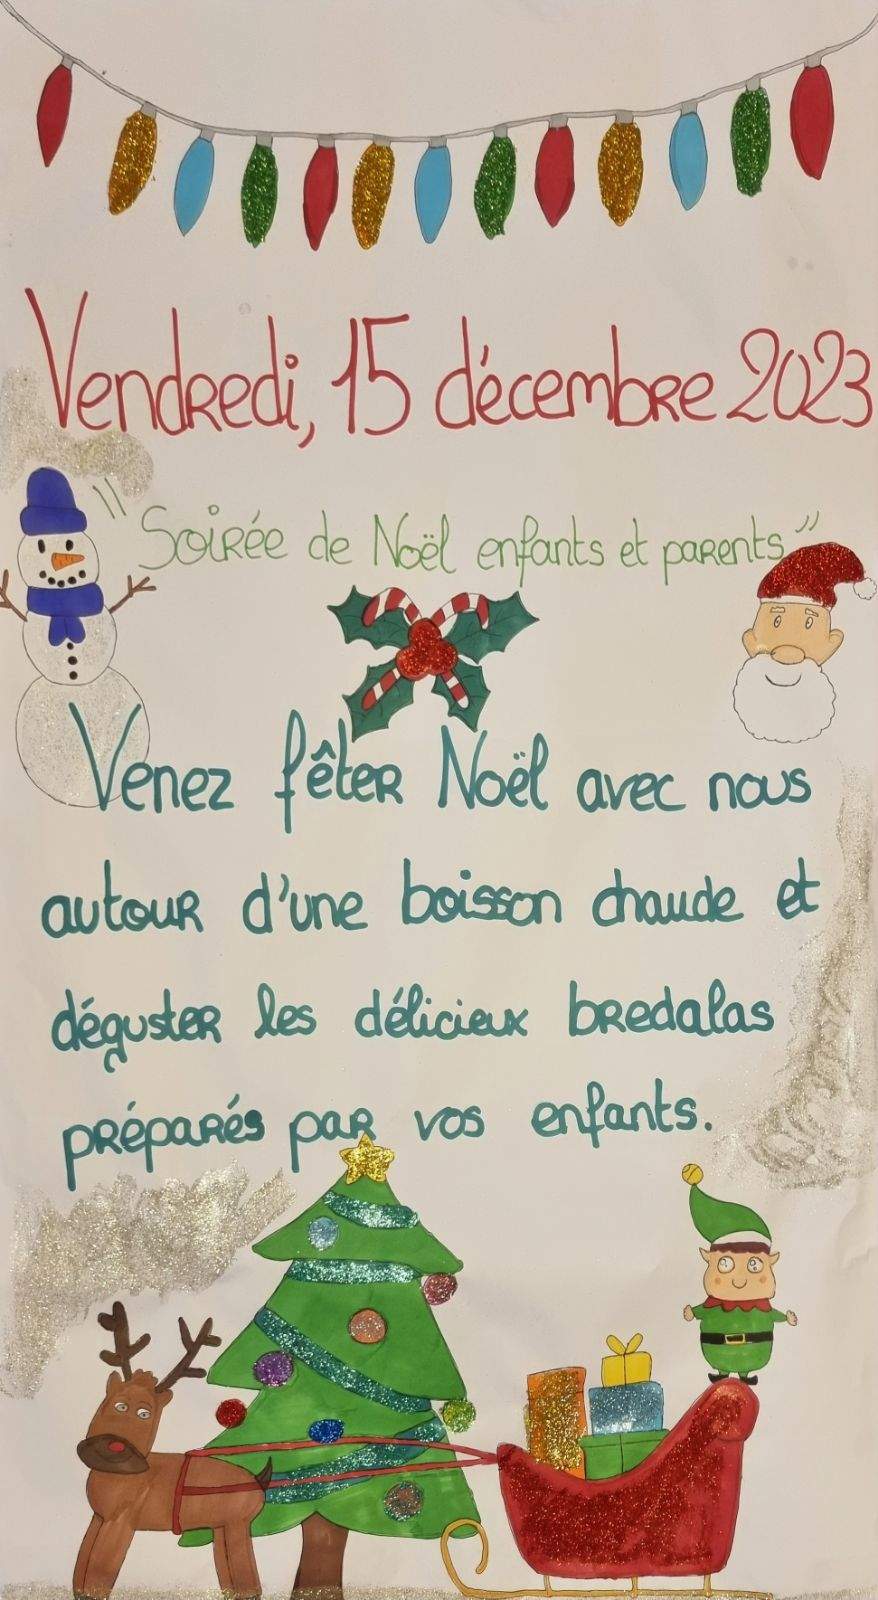 Vendredi, 15 décembre 2023
"Soirée de Noël enfants et parents"
Venez fêter Noël avec nous
autour d'une boisson chaude et
déguster les délicieux bredalas
préparés par vos enfants.